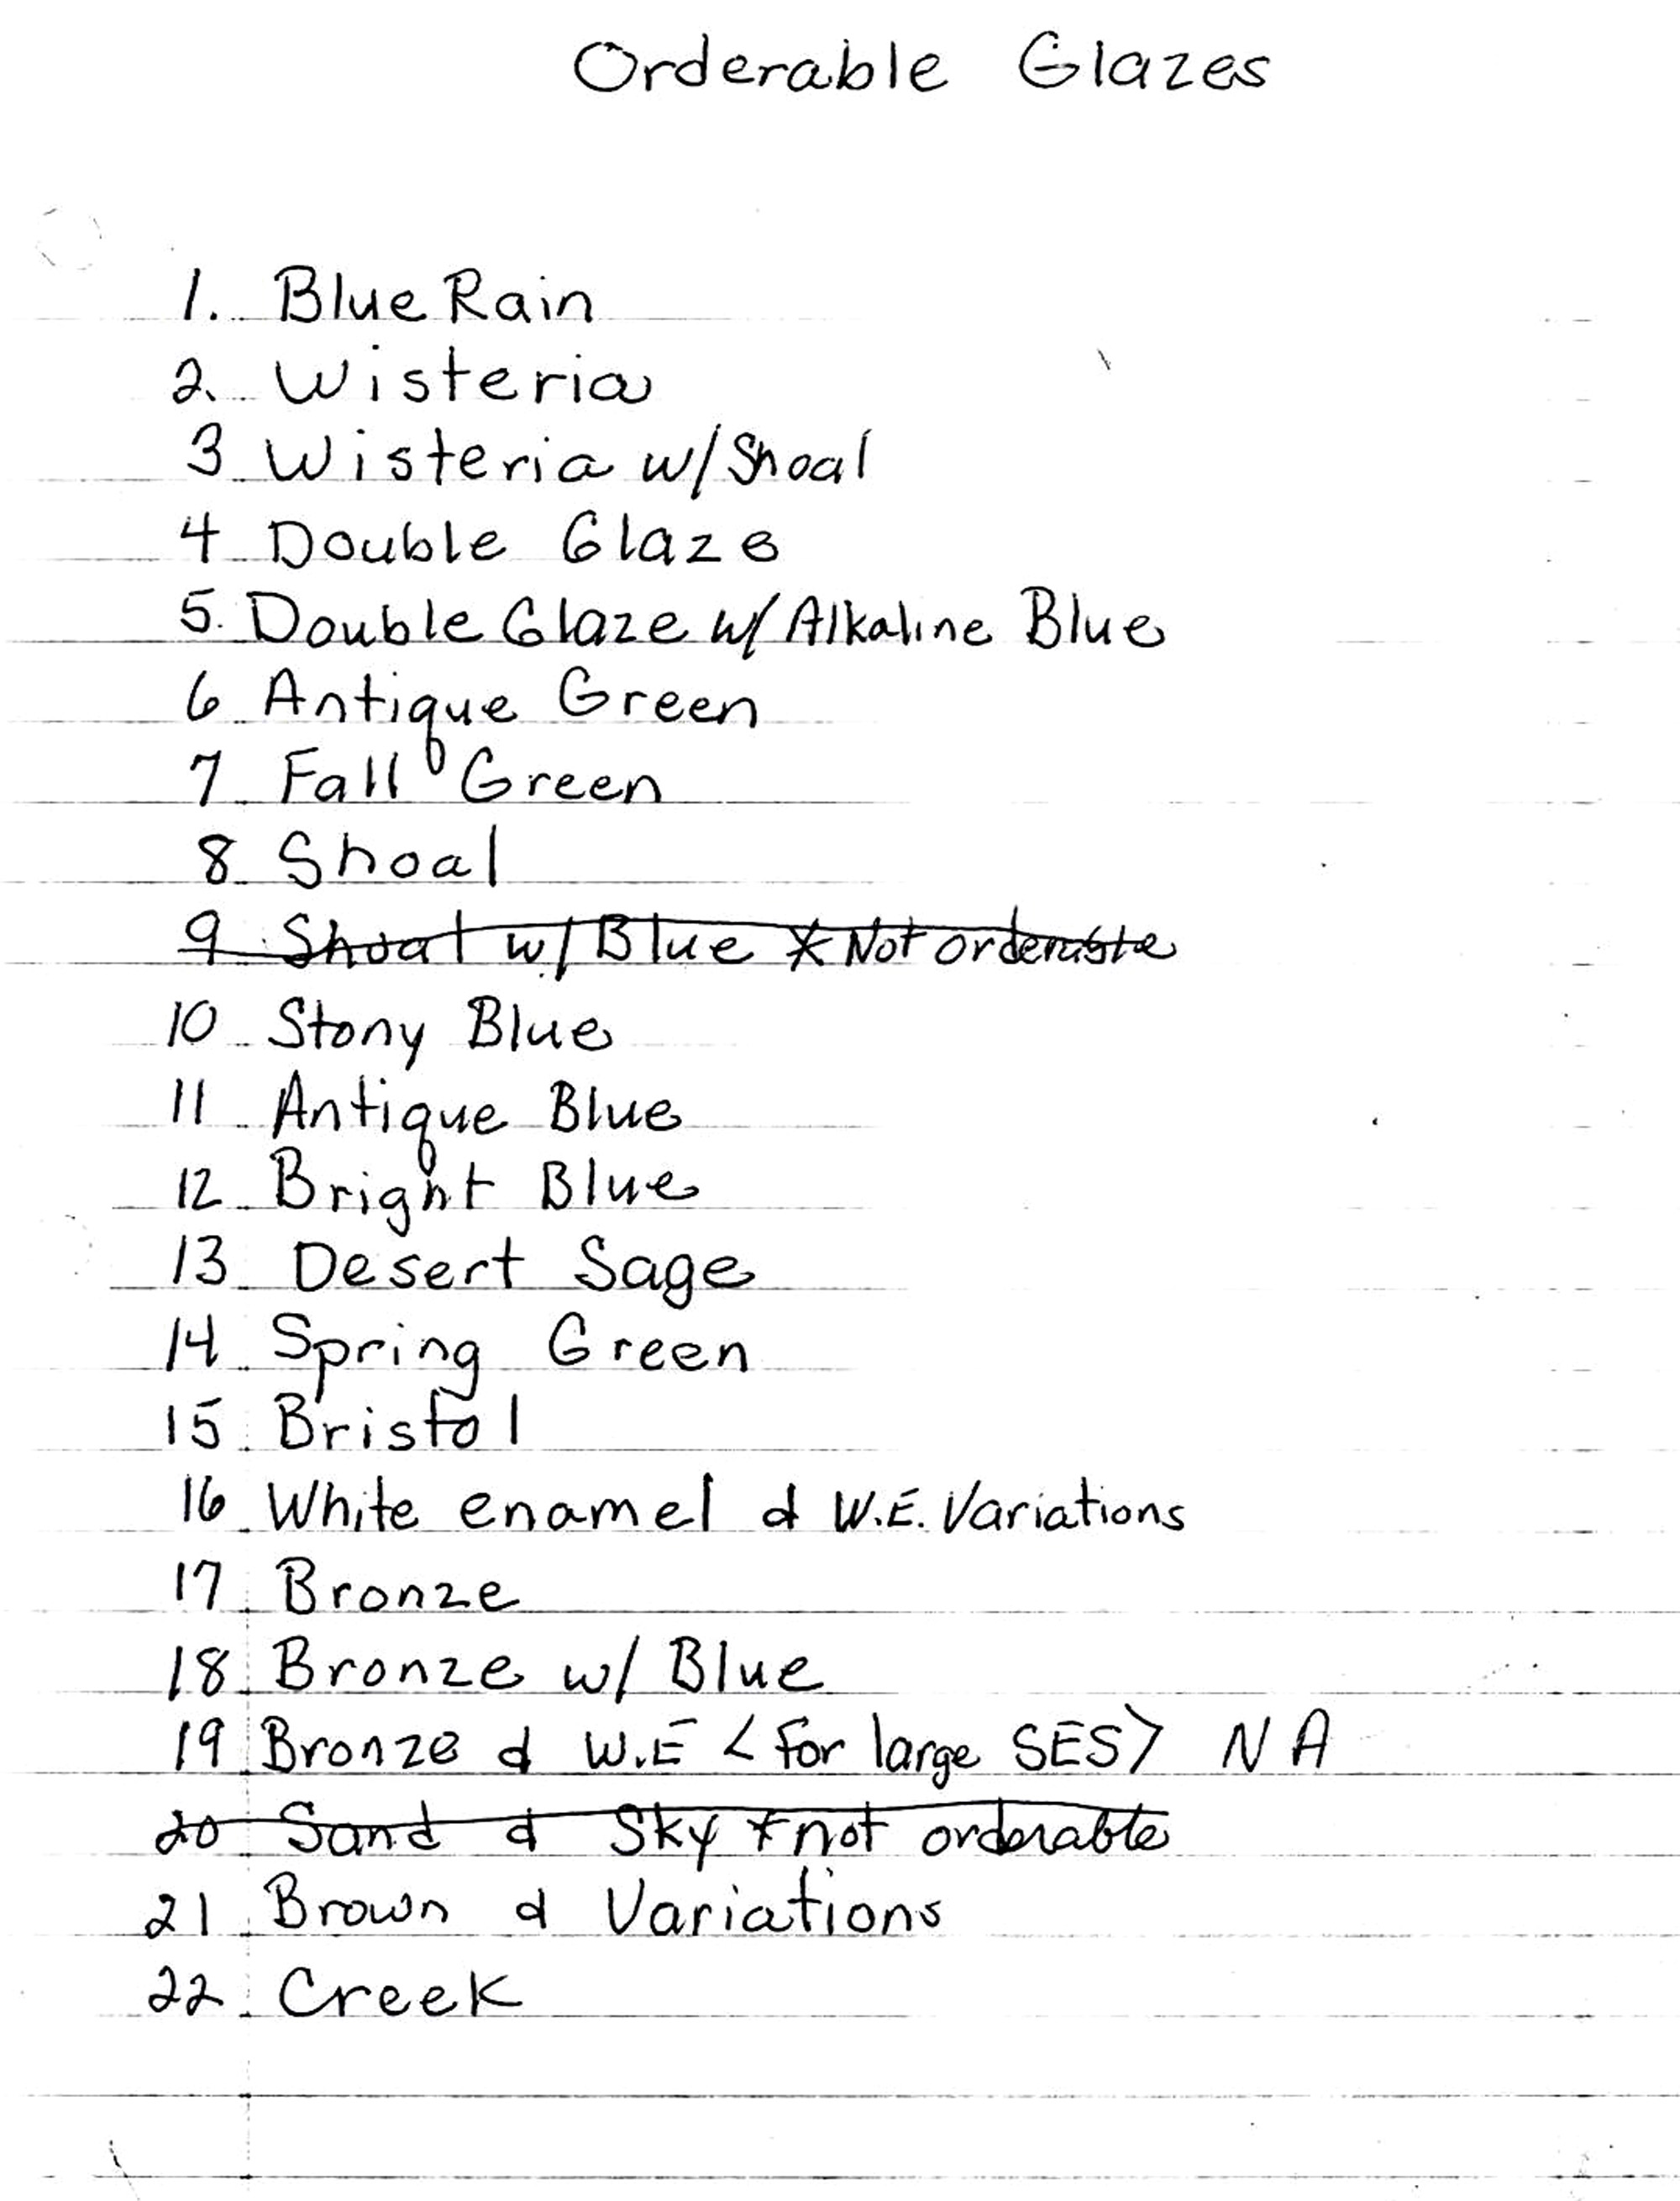 Orderable Glazes
1. Blue Rain
2. Wisteria
3 Wisteria w/Shoal
4 Double Glaze
5. Double Glaze w/ Alkaline Blue
6 Antique Green
7 Fall Green
8 Shoal
9 Shoal w/ Blue * Not orderable
10 Stony Blue
11 Antique Blue
12 Bright Blue
13 Desert Sage
14 Spring Green
15 Bristol
16 White enamel & W.E. Variations
17 Bronze
18 Bronze w/ Blue
19 Bronze & W.E <for large SES> NA
20 Sand & Sky * not orderable
21 Brown & Variations
22 Creek